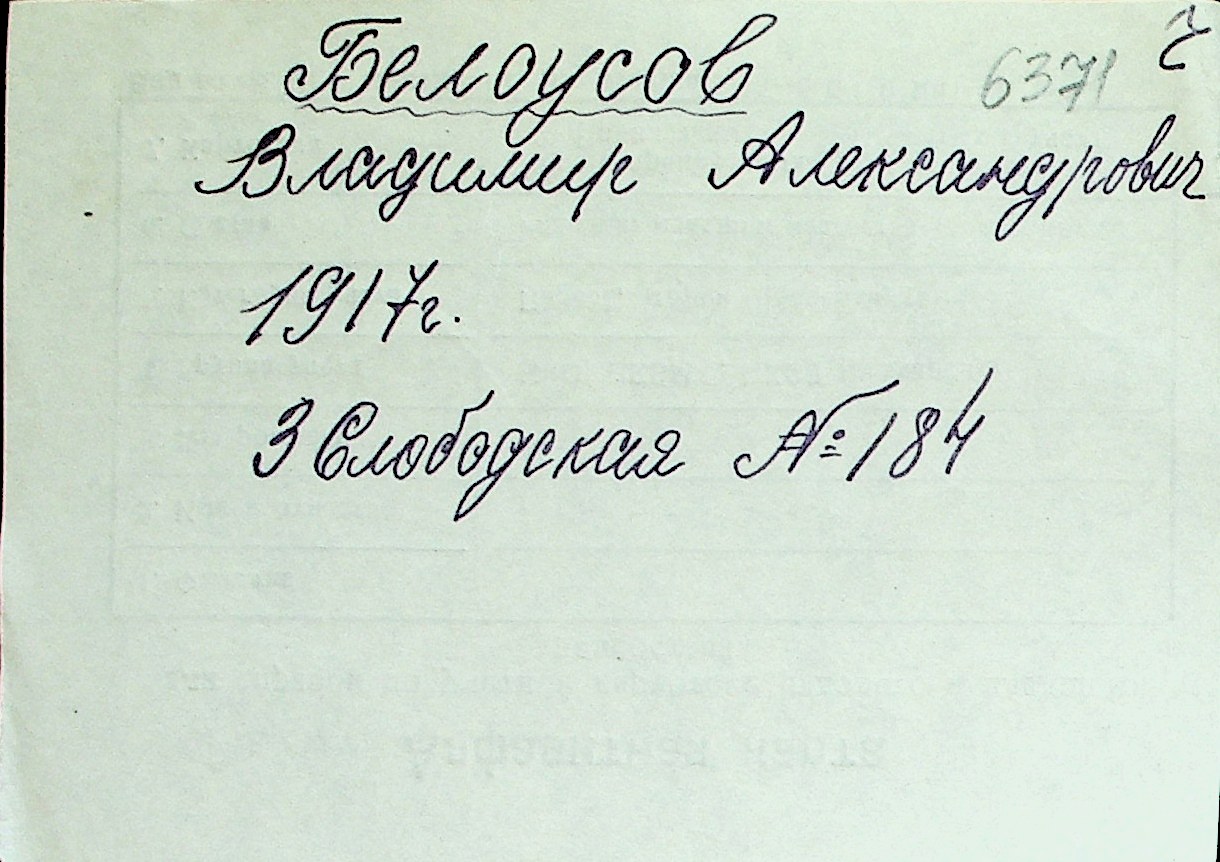 Белоусов 6371
Владимир Александрович
1917г.
3 Слободская № 184
Алфавитная карта